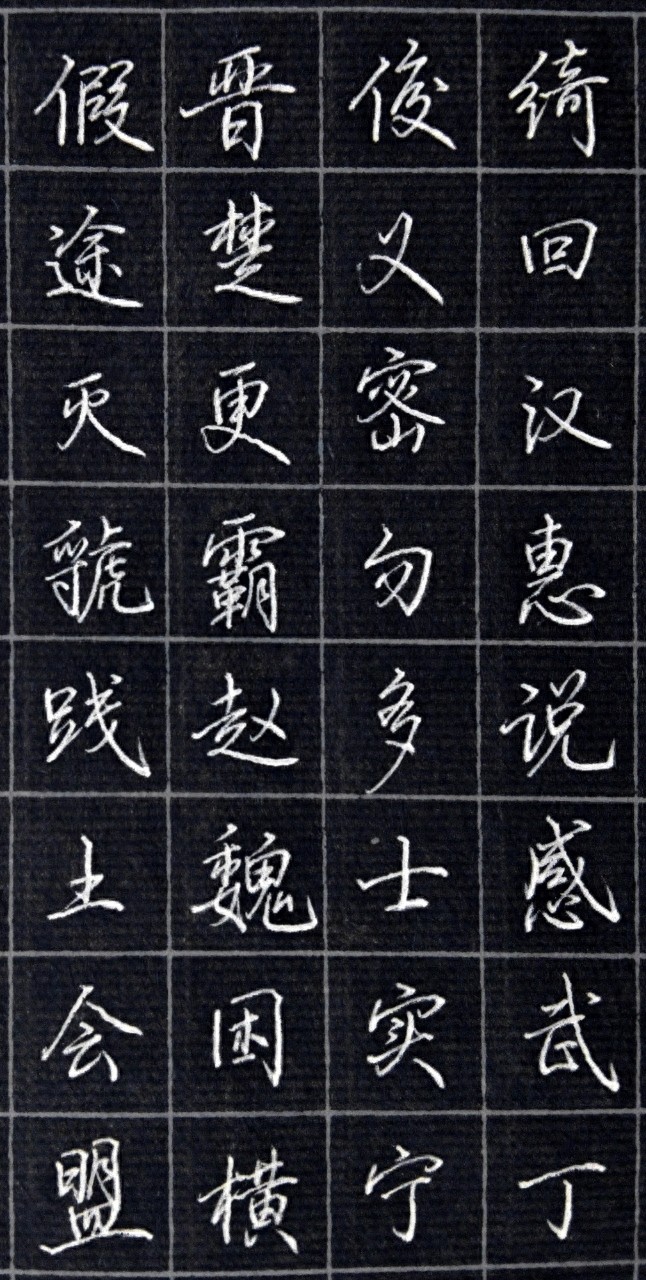 绮回汉惠说感武丁
俊乂密勿多士实宁
晋楚更霸赵魏困横
假途灭虢践土会盟